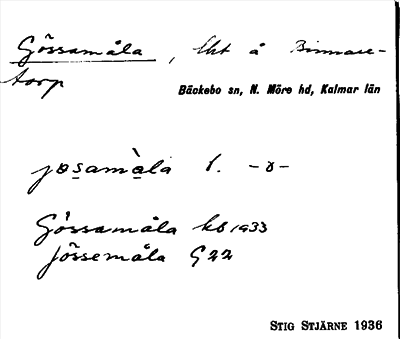 Gössamåla, lht å Binnare-
torp
Bäckebo sn, N. Möre hd, Kalmar län
jøsamàla l. -ɤ-
Gössamåla kb 1933
Jössemåla G22
STIG STJÄRNE 1936